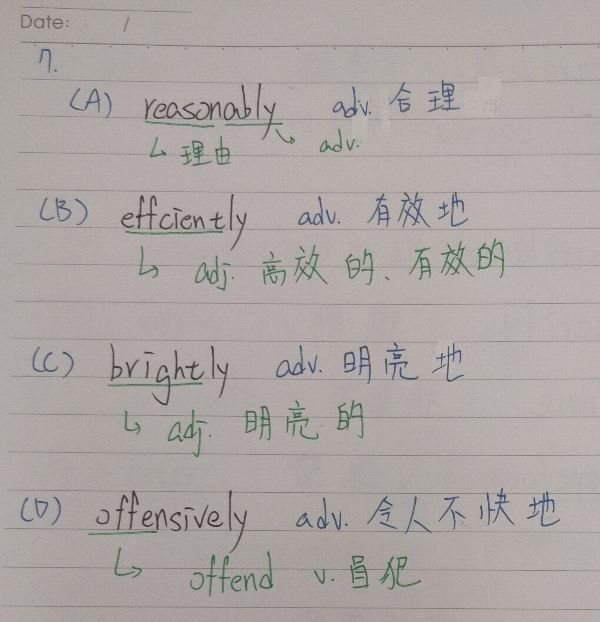 Date: /
7.
(A) reasonably adv. 合理
↳ 理由 adv.
(B) effciently adv. 有效地
↳ adj. 高效的、有效的
(C) brightly adv. 明亮地
↳ adj. 明亮的
(D) offensively adv. 令人不快地
↳ offend v. 冒犯